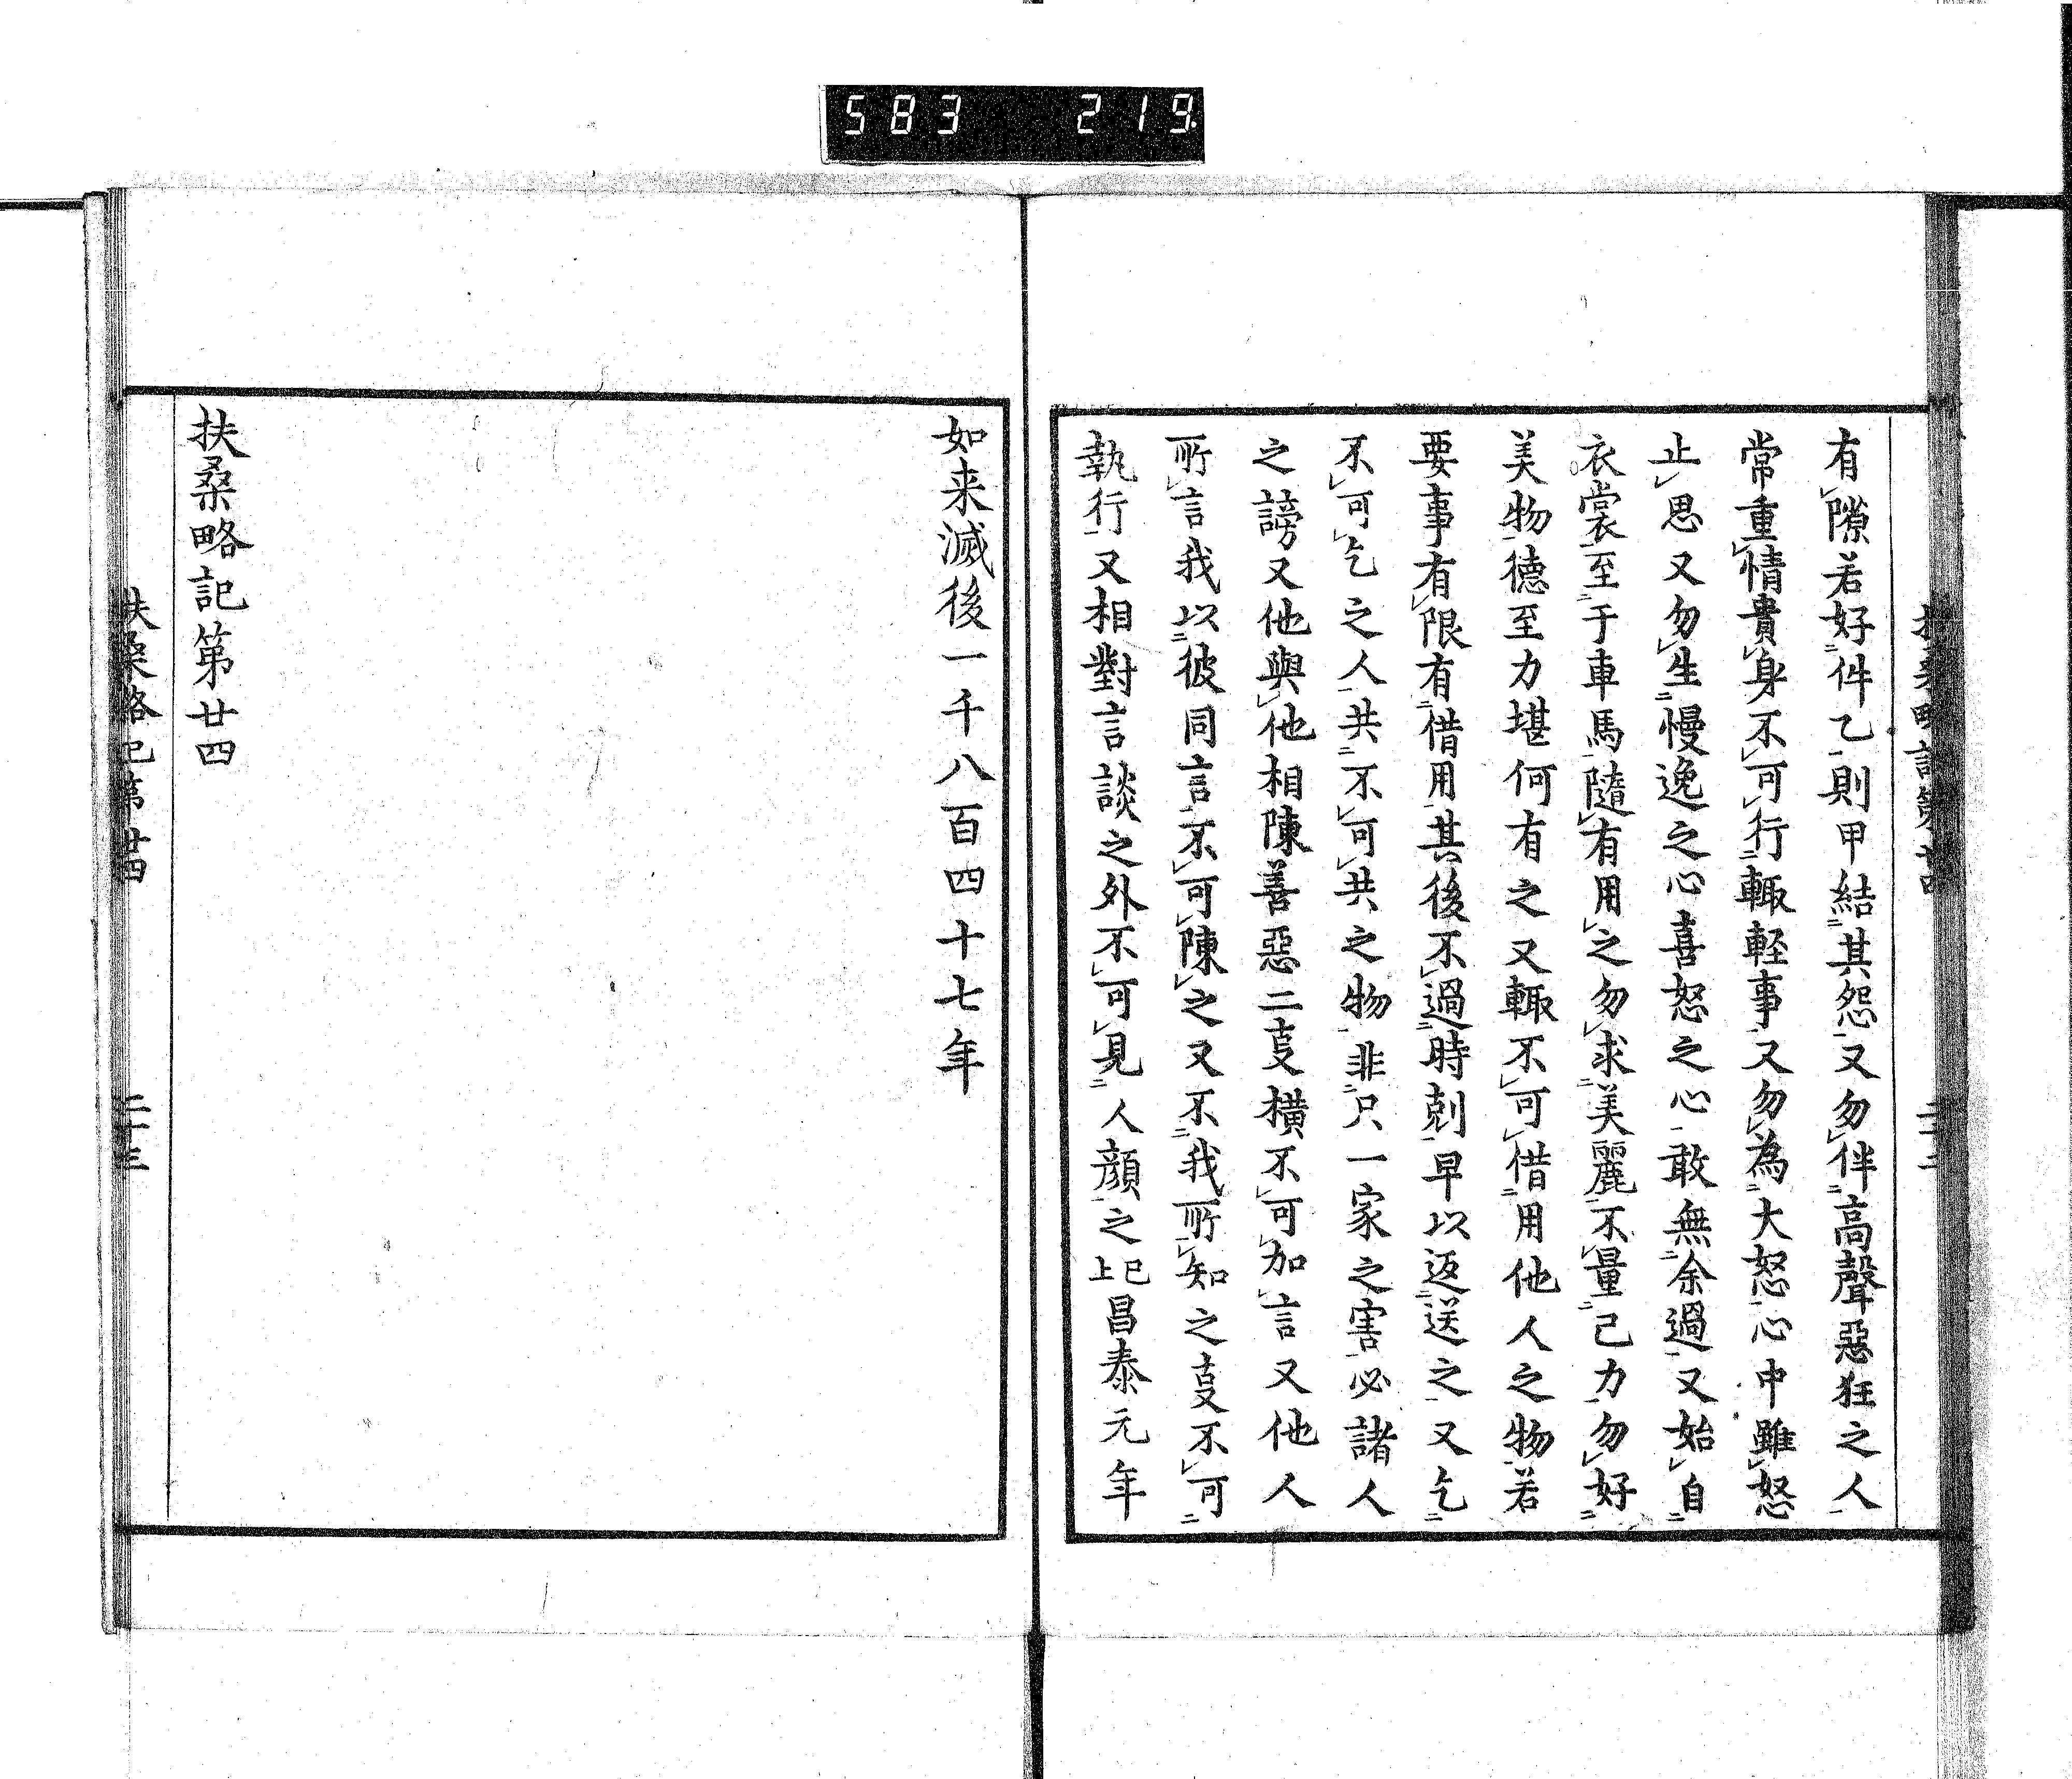 583 219.
有隙若好件乙則甲結其怨又勿伴高聲惡狂之人
常重情貴身不可行輙軽事又勿為大怒心中雖怒
止思又勿生慢逸之心喜怒之心敢無余過又始自
衣裳至于車馬隨有用之勿求美麗不量己力勿好
美物德至力堪何有之又輙不可借用他人之物若
要事有限有借用其後不過時剋早以返送之又乞
不可乞之人共不可共之物非只一家之害必諸人
之謗又他與他相陳善惡二㕝横不可加言又他人
所言我以彼同言不可陳之又不我所知之㕝不可
執行又相對言談之外不可見人顔之已上昌泰元年
如来滅後一千八百四十七年
扶桑略記第廿四
扶桑略記第廿四 二十三